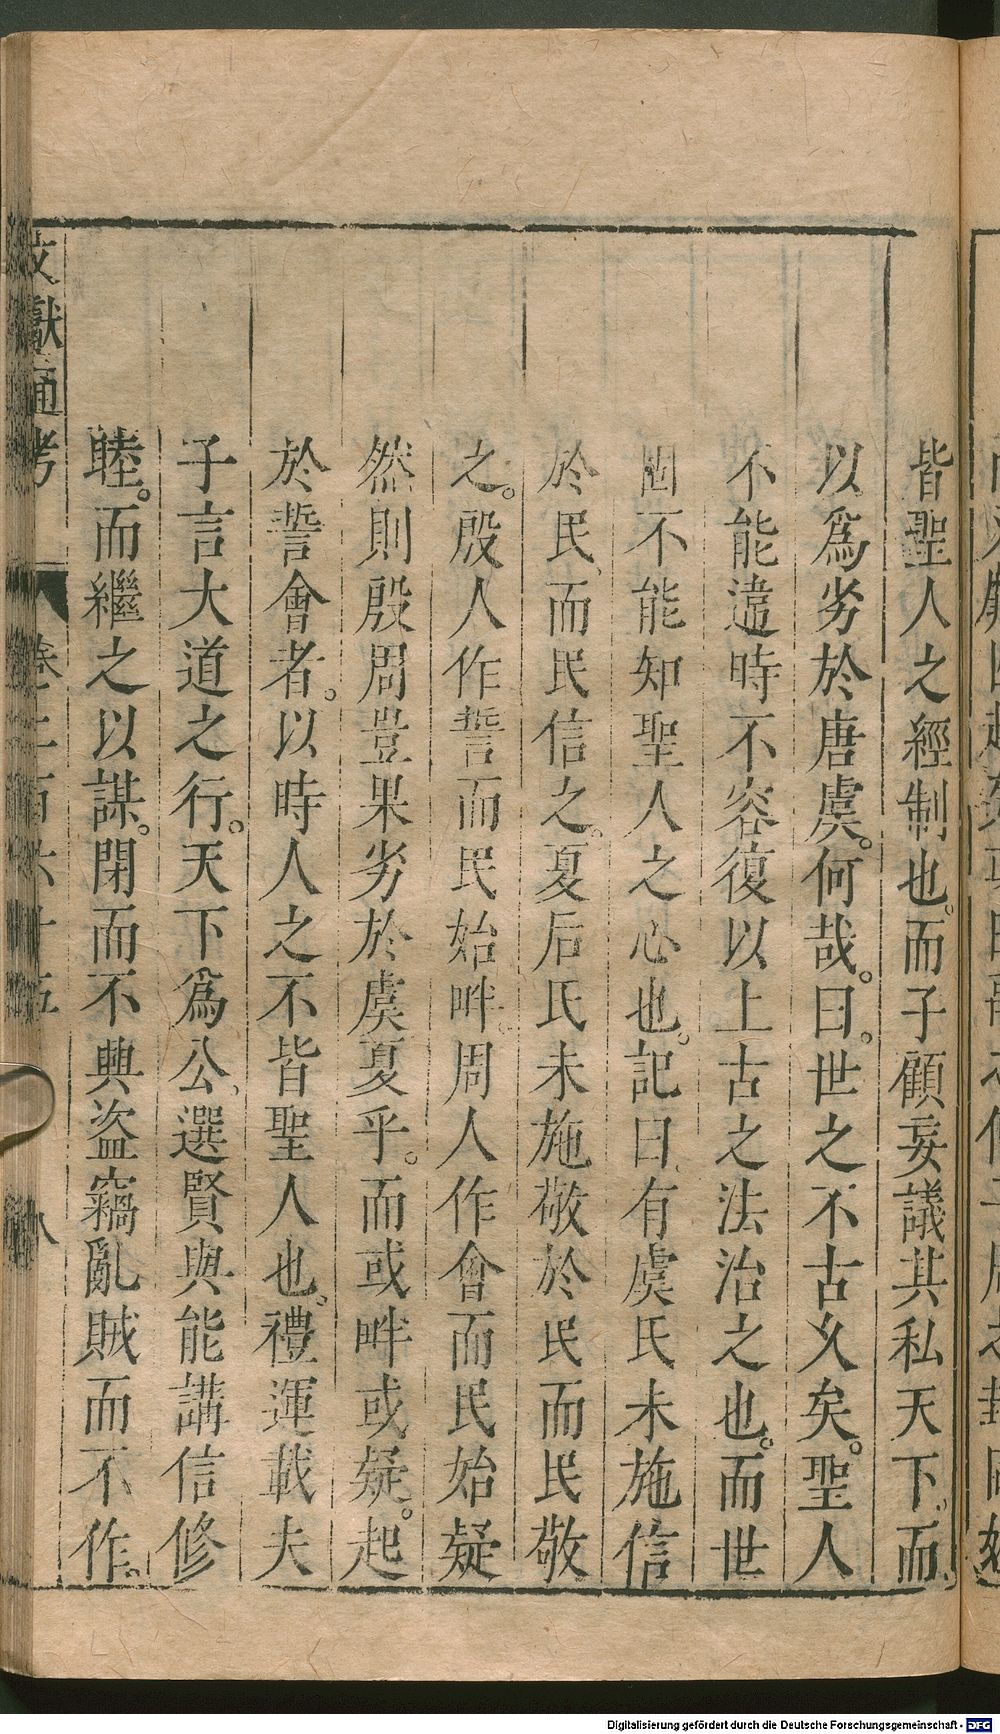 皆聖人之經制也。而子顧妄議其私天下。而
以爲劣於唐虞。何哉。曰。世之不古久矣。聖人
不能違時不容復以上古之法治之也。而世
固不能知聖人之心也。記曰、有虞氏未施信
於民、而民信之。夏后氏未施敬於民而民敬
之。殷人作誓而民始畔。周人作會而民始疑
然則殷周豈果劣於虞夏乎。而或畔或疑。起
於誓會者。以時人之不皆聖人也。禮運載夫
子言大道之行。天下爲公、選賢與能講信修
睦。而繼之以謀。閉而不興盜竊亂賊而不作。
文獻通考 卷二百六十五 八
Digitalisierung gefördert durch die Deutsche Forschungsgemeinschaft - DFG